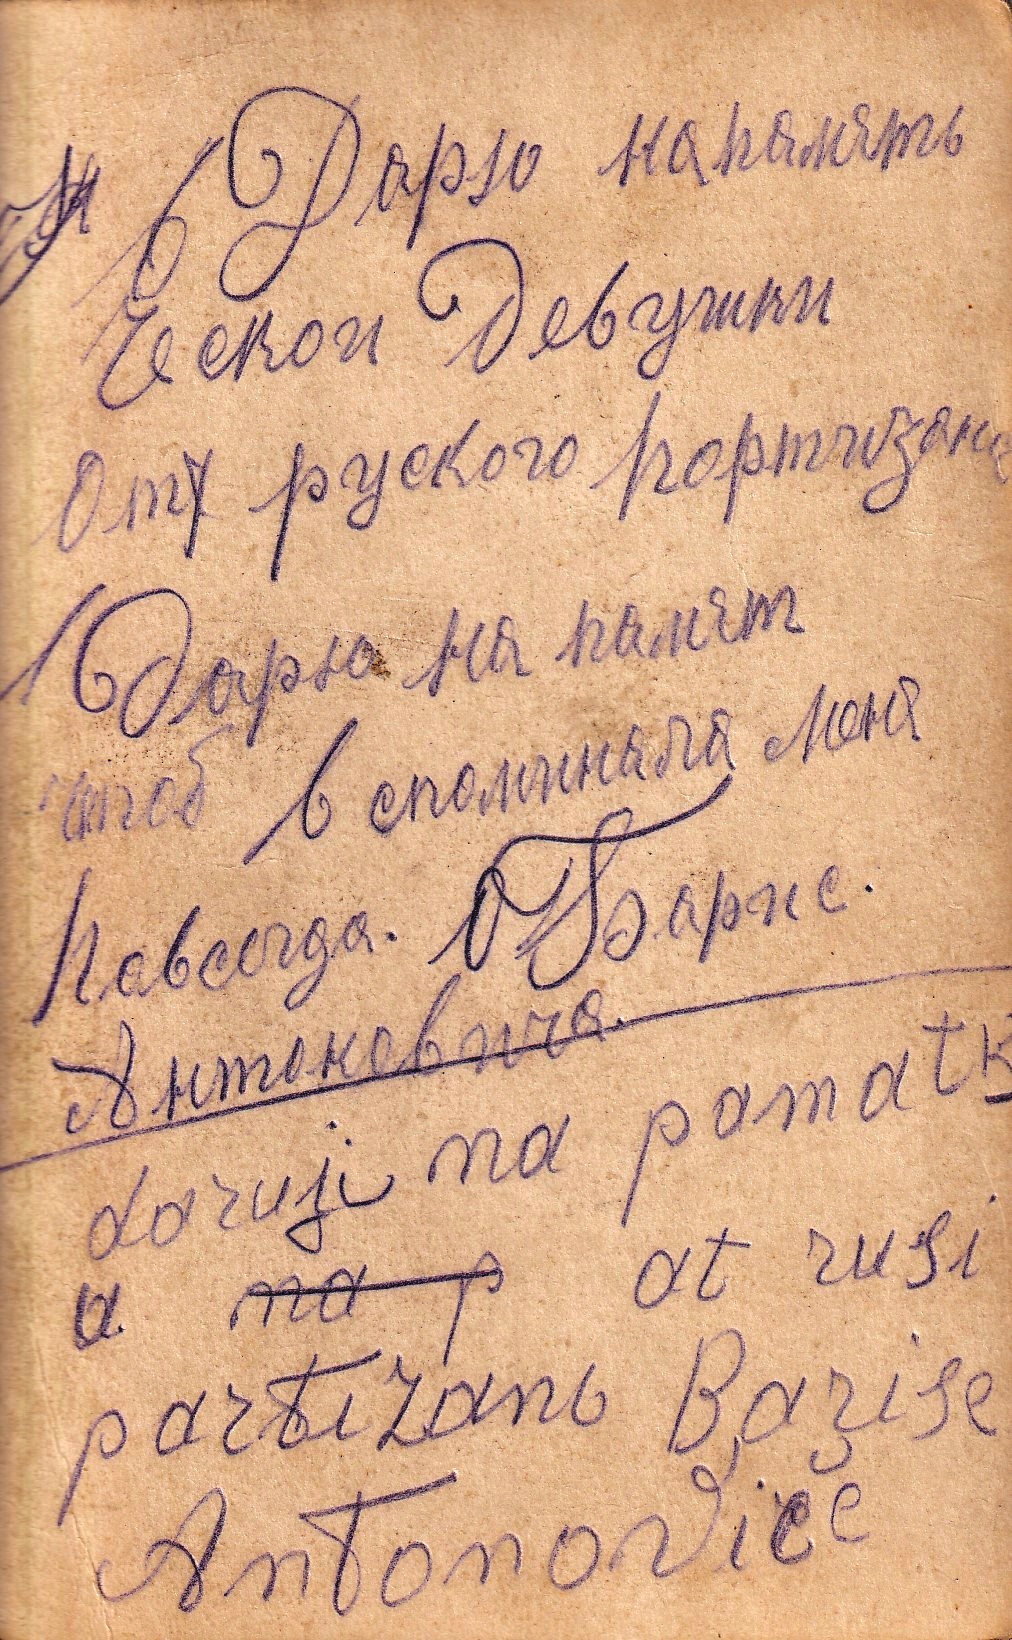 Дарю на память
Ческои Девушки
От руского портизана
Дарю на памят
штоб в споминала меня
Навсегда. Барис.
Антоновича.
daruji na pamatk
a na p at rusi
partizanь Barise
Antonovice